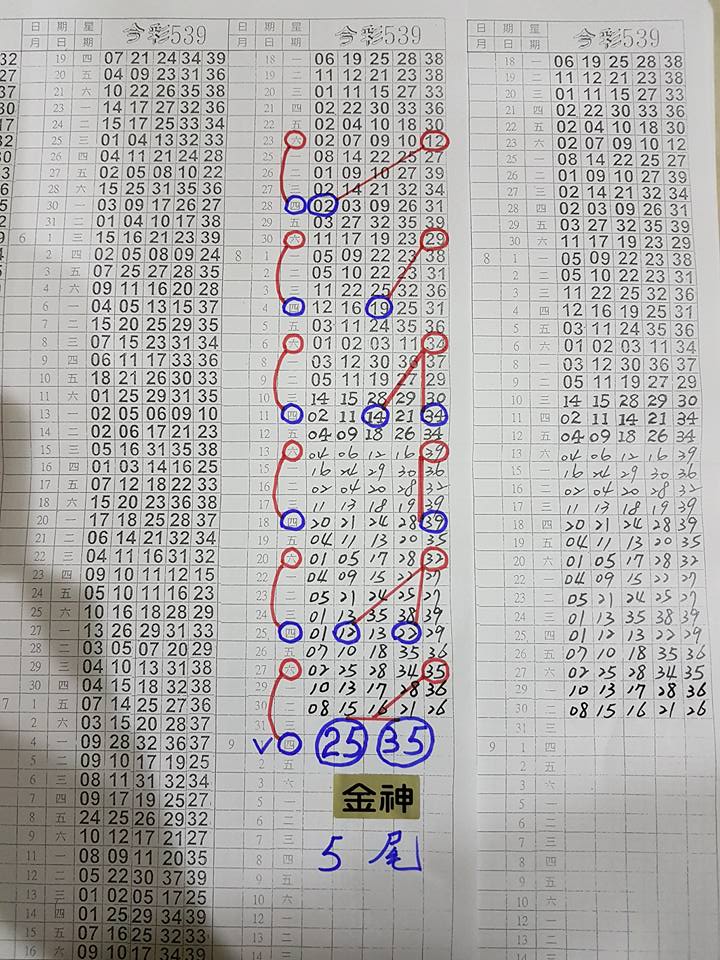 日 期 星 今彩539
月 日 期
19 四 07 21 24 34 39
20 五 04 09 23 31 36
21 六 10 22 26 35 38
23 一 14 17 27 32 36
24 二 15 17 25 33 34
25 三 01 04 13 32 33
26 四 04 11 21 24 28
27 五 02 05 08 10 22
28 六 15 25 31 35 36
30 一 03 09 17 26 27
31 二 01 04 10 17 38
6 1 三 15 16 21 23 39
2 四 02 05 08 09 24
3 五 07 25 27 28 35
4 六 09 11 16 20 28
6 一 04 05 13 15 37
7 二 15 20 25 29 35
8 三 07 15 23 31 34
9 四 06 11 17 33 36
10 五 18 21 26 30 33
11 六 01 25 29 31 35
13 一 02 05 06 09 10
14 二 02 06 17 21 23
15 三 05 16 31 35 38
16 四 01 03 14 16 25
17 五 07 12 18 22 33
18 六 15 20 23 36 38
20 一 17 18 25 28 37
21 二 06 14 21 32 34
22 三 04 11 16 31 32
23 四 09 10 11 12 15
24 五 05 10 11 16 23
25 六 10 16 18 28 29
27 一 13 26 29 31 33
28 二 03 05 07 20 29
29 三 04 10 13 31 38
30 四 04 15 18 32 38
7 1 五 07 14 25 27 36
2 六 03 15 20 28 37
4 一 09 28 32 36 37
5 二 09 10 17 19 25
6 三 08 11 31 32 34
7 四 09 17 19 25 27
8 五 24 25 26 29 32
9 六 10 12 17 21 27
11 一 08 09 11 20 35
12 二 05 22 30 37 39
13 三 01 02 05 17 25
14 四 01 25 29 34 39
15 五 07 16 25 32 33
16 六 09 10 17 34 39
日 期 星 今彩539
月 日 期
18 一 06 19 25 28 38
19 二 11 12 21 23 38
20 三 01 11 15 27 33
21 四 02 22 30 33 36
22 五 02 04 10 18 30
23 六 02 07 09 10 12
25 一 08 14 22 25 27
26 二 01 09 10 27 39
27 三 02 14 21 32 34
28 四 02 03 09 26 31
29 五 03 27 32 35 39
30 六 11 17 19 23 29
8 1 一 05 09 22 23 38
2 二 05 10 22 23 31
3 三 11 22 25 32 36
4 四 12 16 19 25 31
5 五 03 11 24 35 36
6 六 01 02 03 11 34
8 一 03 12 30 36 37
9 二 05 11 19 27 29
10 三 14 15 28 29 30
11 四 02 11 14 21 34
12 五 04 09 18 26 34
13 六 04 06 12 16 39
15 一 16 24 29 30 36
16 二 02 04 20 28 32
17 三 11 13 18 19 39
18 四 20 21 24 28 39
19 五 04 11 13 20 35
20 六 01 05 17 28 32
22 一 04 09 15 22 27
23 二 05 21 24 25 27
24 三 01 13 35 38 39
25 四 01 12 13 22 29
26 五 07 10 18 35 36
27 六 02 25 28 34 35
29 一 10 13 17 28 36
30 二 08 15 16 21 26
31 三
9 1 V 四 25 35
2 五
3 六
5 一
6 二
7 三
8 四
9 五
10 六
12 一
13 二
金神
5 尾
日 期 星 今彩539
月 日 期
18 一 06 19 25 28 38
19 二 11 12 21 23 38
20 三 01 11 15 27 33
21 四 02 22 30 33 36
22 五 02 04 10 18 30
23 六 02 07 09 10 12
25 一 08 14 22 25 27
26 二 01 09 10 27 39
27 三 02 14 21 32 34
28 四 02 03 09 26 31
29 五 03 27 32 35 39
30 六 11 17 19 23 29
8 1 一 05 09 22 23 38
2 二 05 10 22 23 31
3 三 11 22 25 32 36
4 四 12 16 19 25 31
5 五 03 11 24 35 36
6 六 01 02 03 11 34
8 一 03 12 30 36 37
9 二 05 11 19 27 29
10 三 14 15 28 29 30
11 四 02 11 14 21 34
12 五 04 09 18 26 34
13 六 04 06 12 16 39
15 一 16 24 29 30 36
16 二 02 04 20 28 32
17 三 11 13 18 19 39
18 四 20 21 24 28 39
19 五 04 11 13 20 35
20 六 01 05 17 28 32
22 一 04 09 15 22 27
23 二 05 21 24 25 27
24 三 01 13 35 38 39
25 四 01 12 13 22 29
26 五 07 10 18 35 36
27 六 02 25 28 34 35
29 一 10 13 17 28 36
30 二 08 15 16 21 26
31 三
9 1 四
2 五
3 六
5 一
6 二
7 三
8 四
9 五
10 六
12 一
13 二
14 三